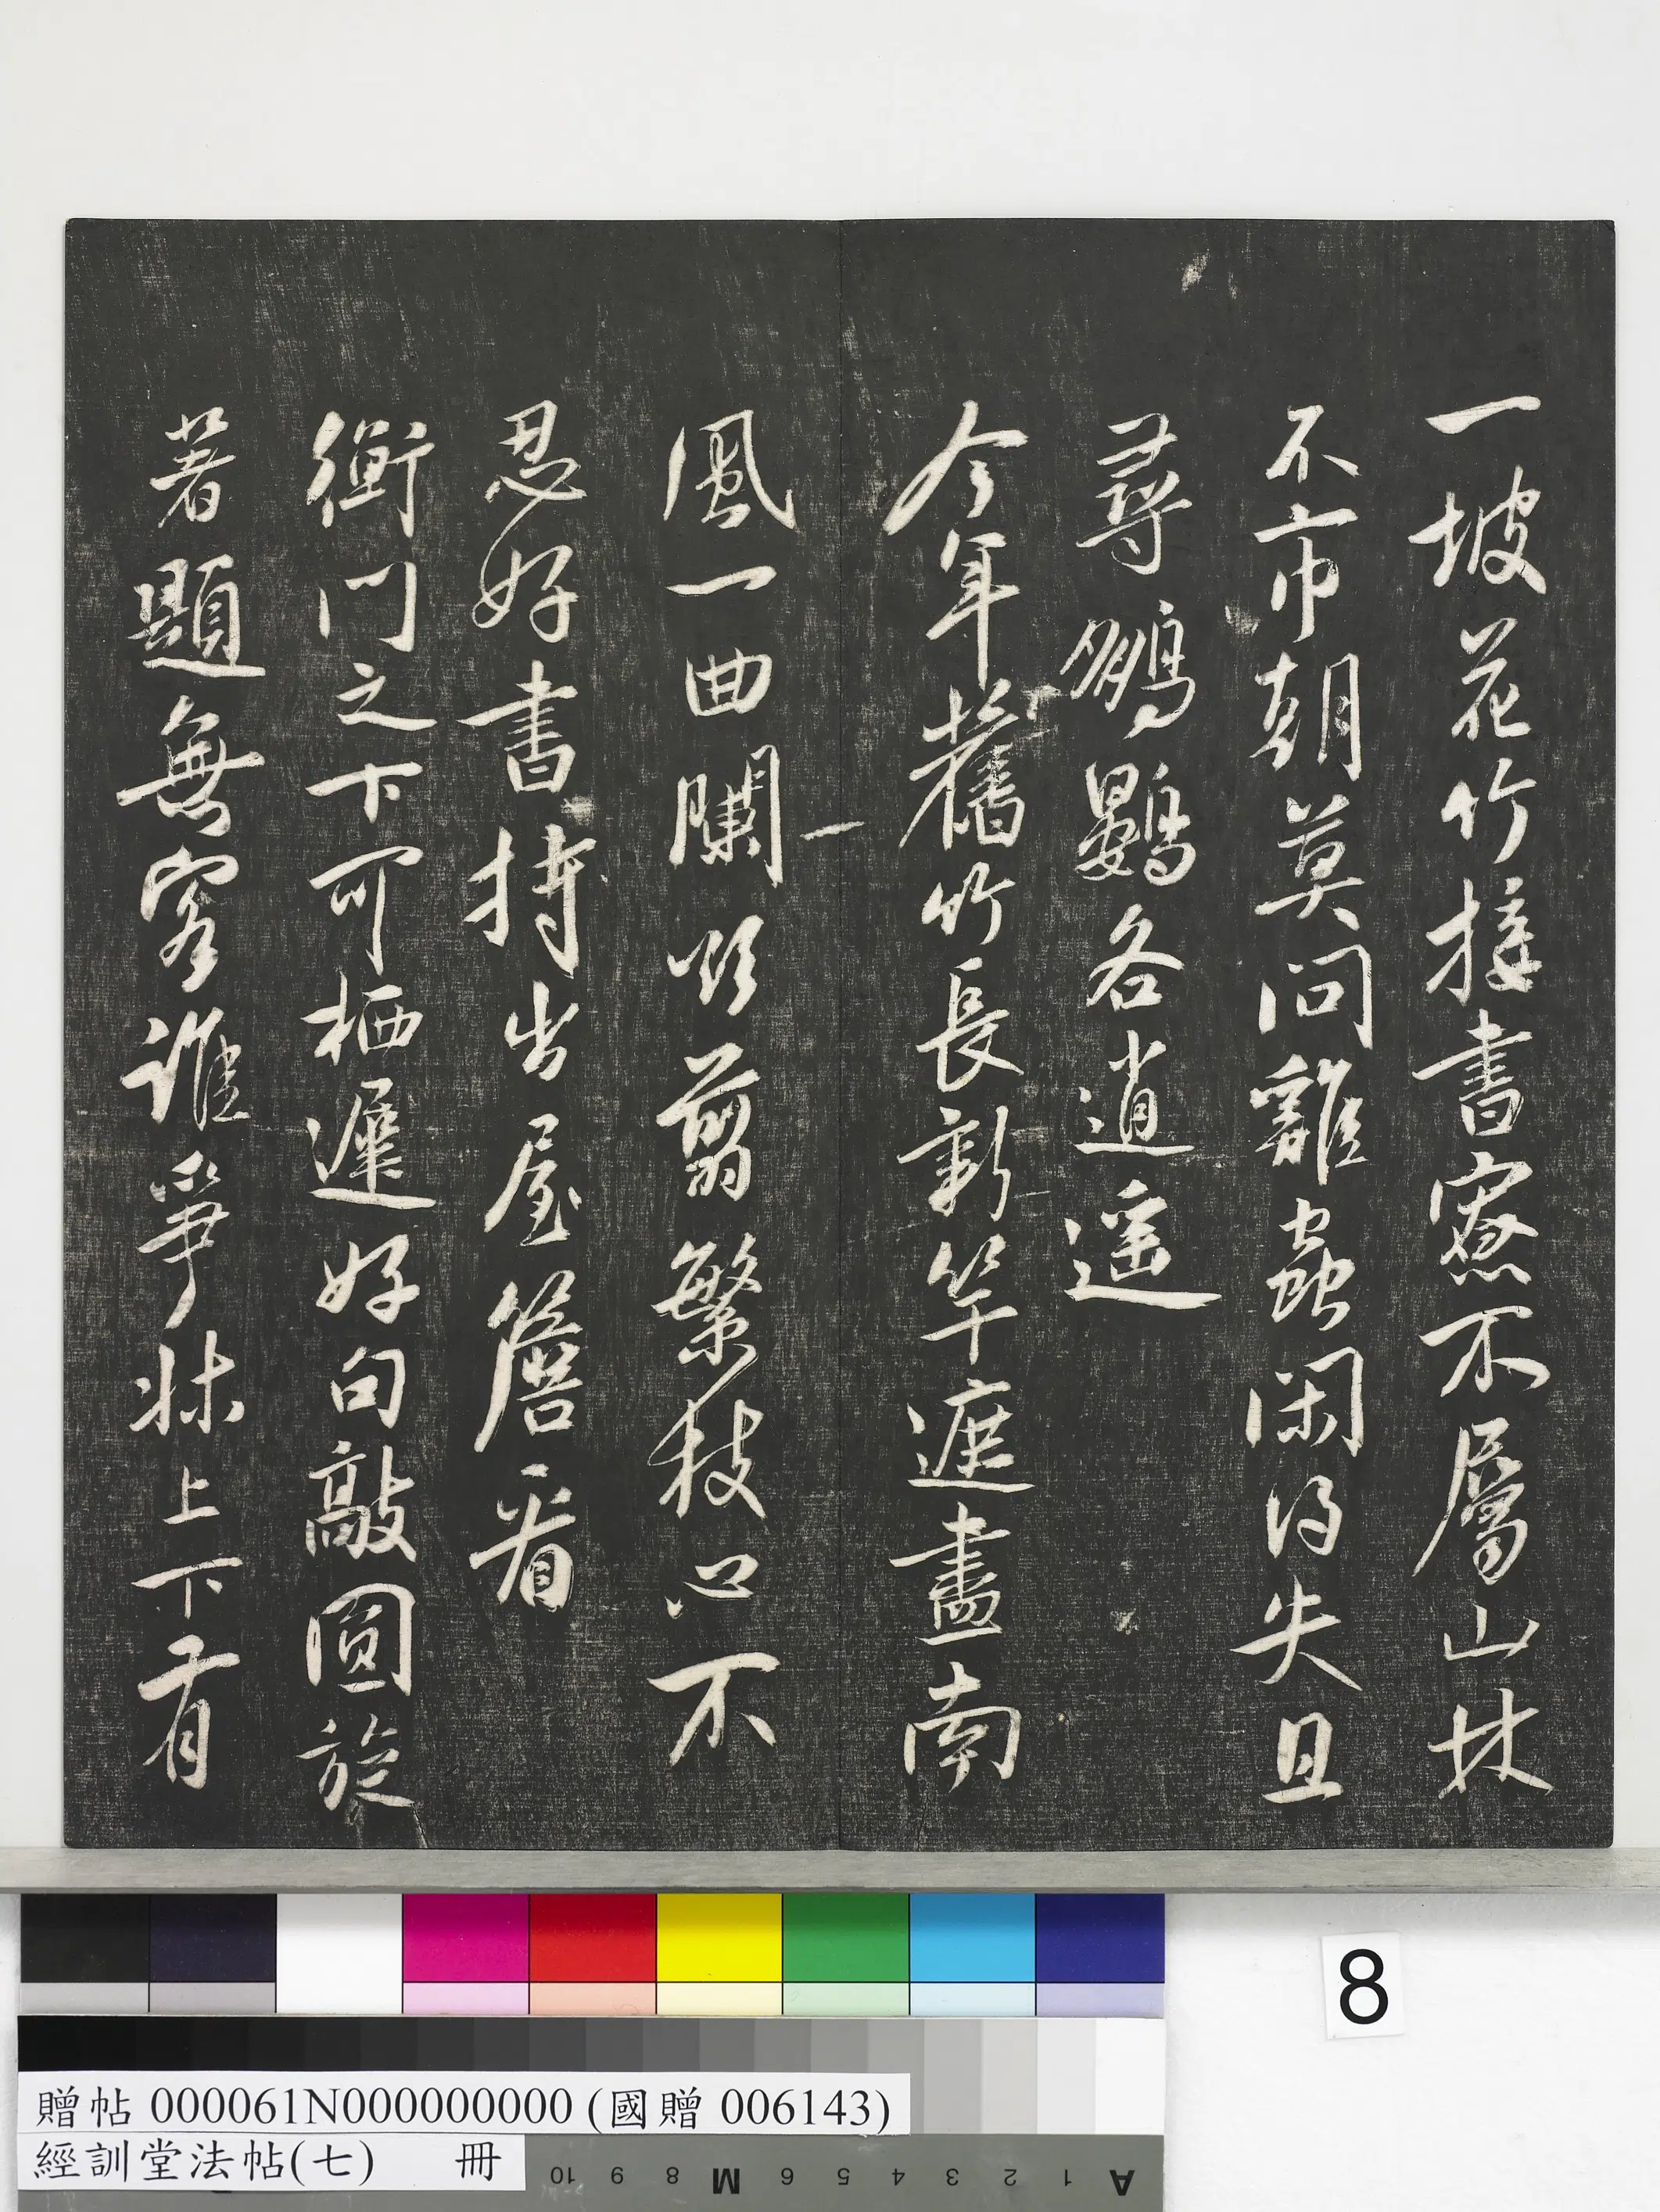 一坡花竹接書寮不屬山林
不市朝莫問雞蟲閑得失且
尋鵬鷃各逍遥
今年舊竹長新竿遮盡南
風一曲闌欲翦繁枝心不
忍好書持出屋簷看
衡門之下可栖遲好句敲圓旋
著題無客誰爭牀上下有
8
贈帖 000061N000000000 (國贈 006143)
經訓堂法帖(七) 冊
A 1 2 3 4 5 6 M 8 9 10